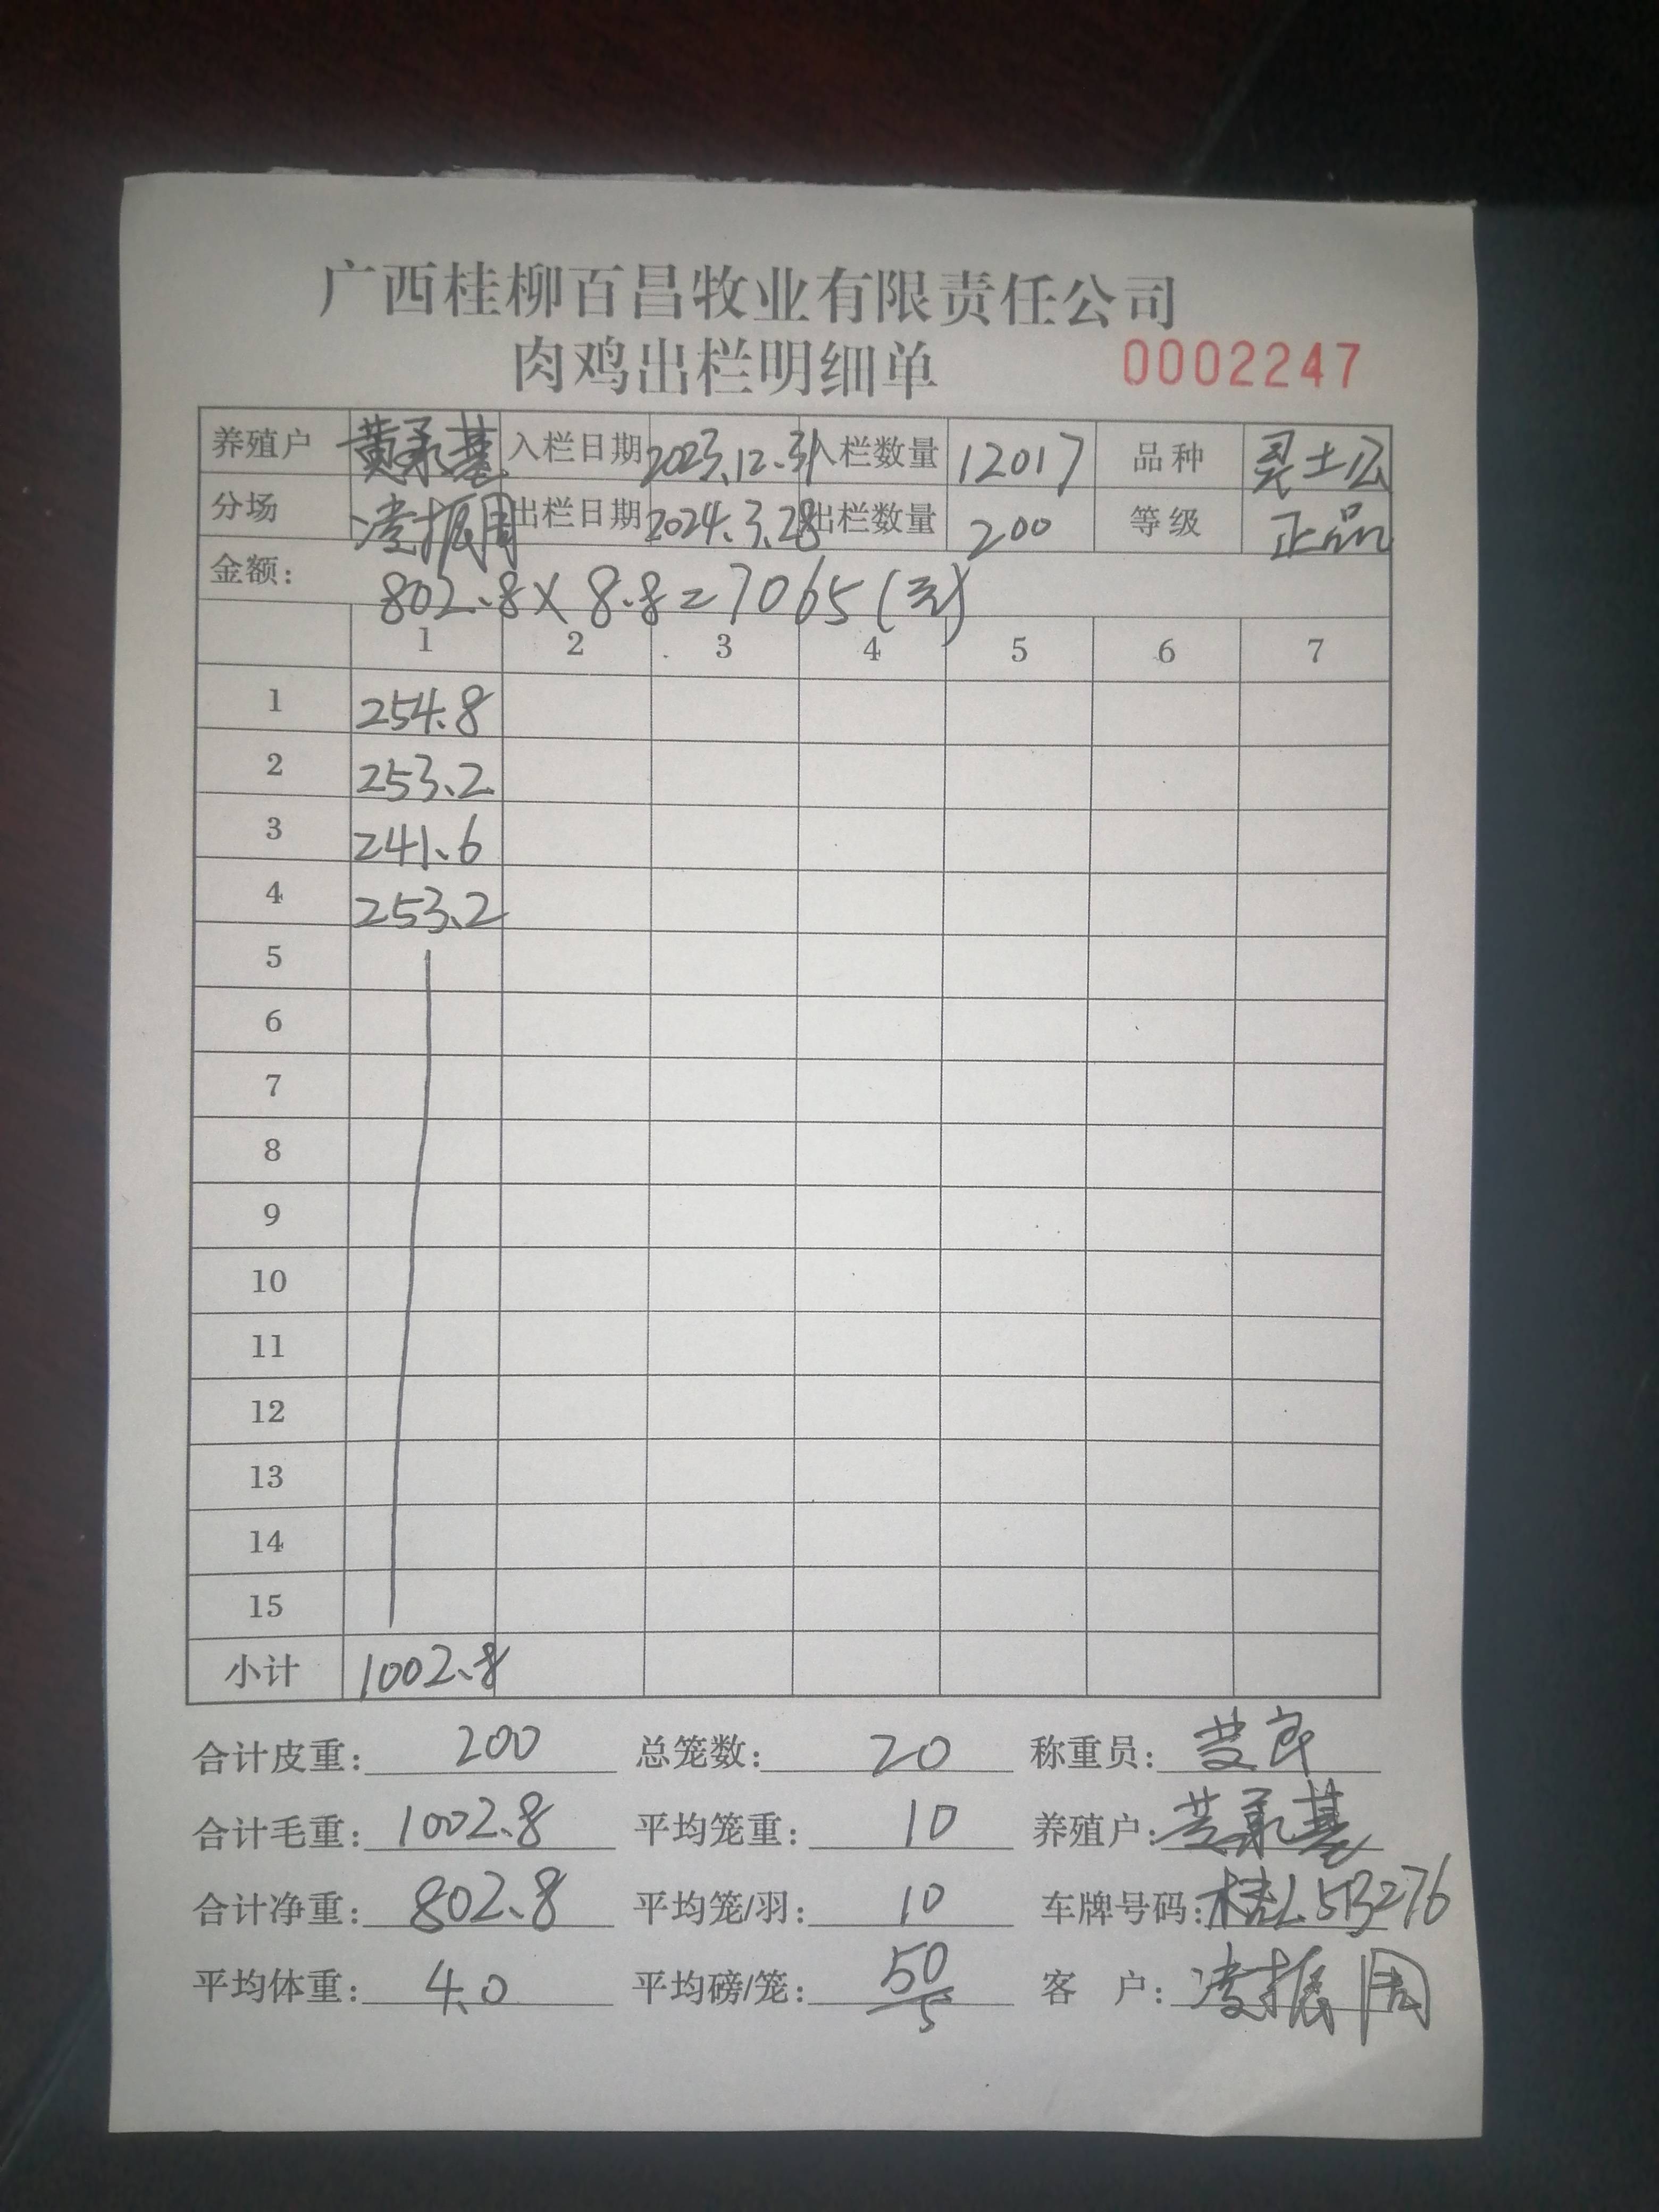 广西桂柳百昌牧业有限责任公司
肉鸡出栏明细单 0002247
养殖户 黄承基 入栏日期 2023.12.31 入栏数量 12017 品种 灵土公
分场 凌振周 出栏日期 2024.3.28 出栏数量 200 等级 正品
金额: 802.8×8.8=7065(元)
1 2 3 4 5 6 7
1 254.8
2 253.2
3 241.6
4 253.2
5
6
7
8
9
10
11
12
13
14
15
小计 1002.8
合计皮重: 200 总笼数: 20 称重员:
合计毛重: 1002.8 平均笼重: 10 养殖户: 黄承基
合计净重: 802.8 平均笼/羽: 10 车牌号码: 桂L5B276
平均体重: 4.0 平均磅/笼: 50/5 客 户: 凌振周